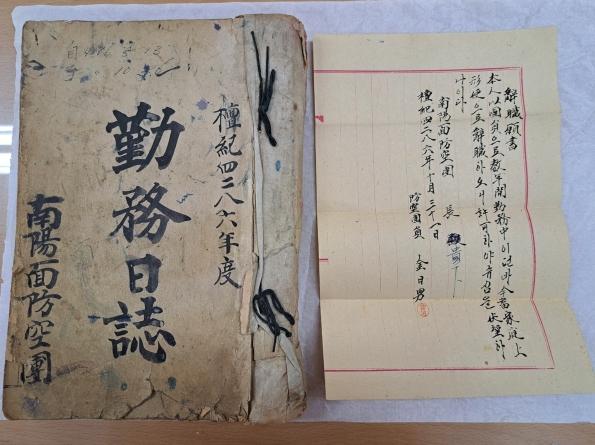 檀紀四二八六年度
勤務日誌
南陽面防空團
解職願書
本人以團員으로數年間勤務中이든바今番家庭上
形便으로解職하오니許可하야주심을伏望하
나이다
檀紀四二八六年十月三十一日
南陽面防空團 長 貴下
防空團員 金日男